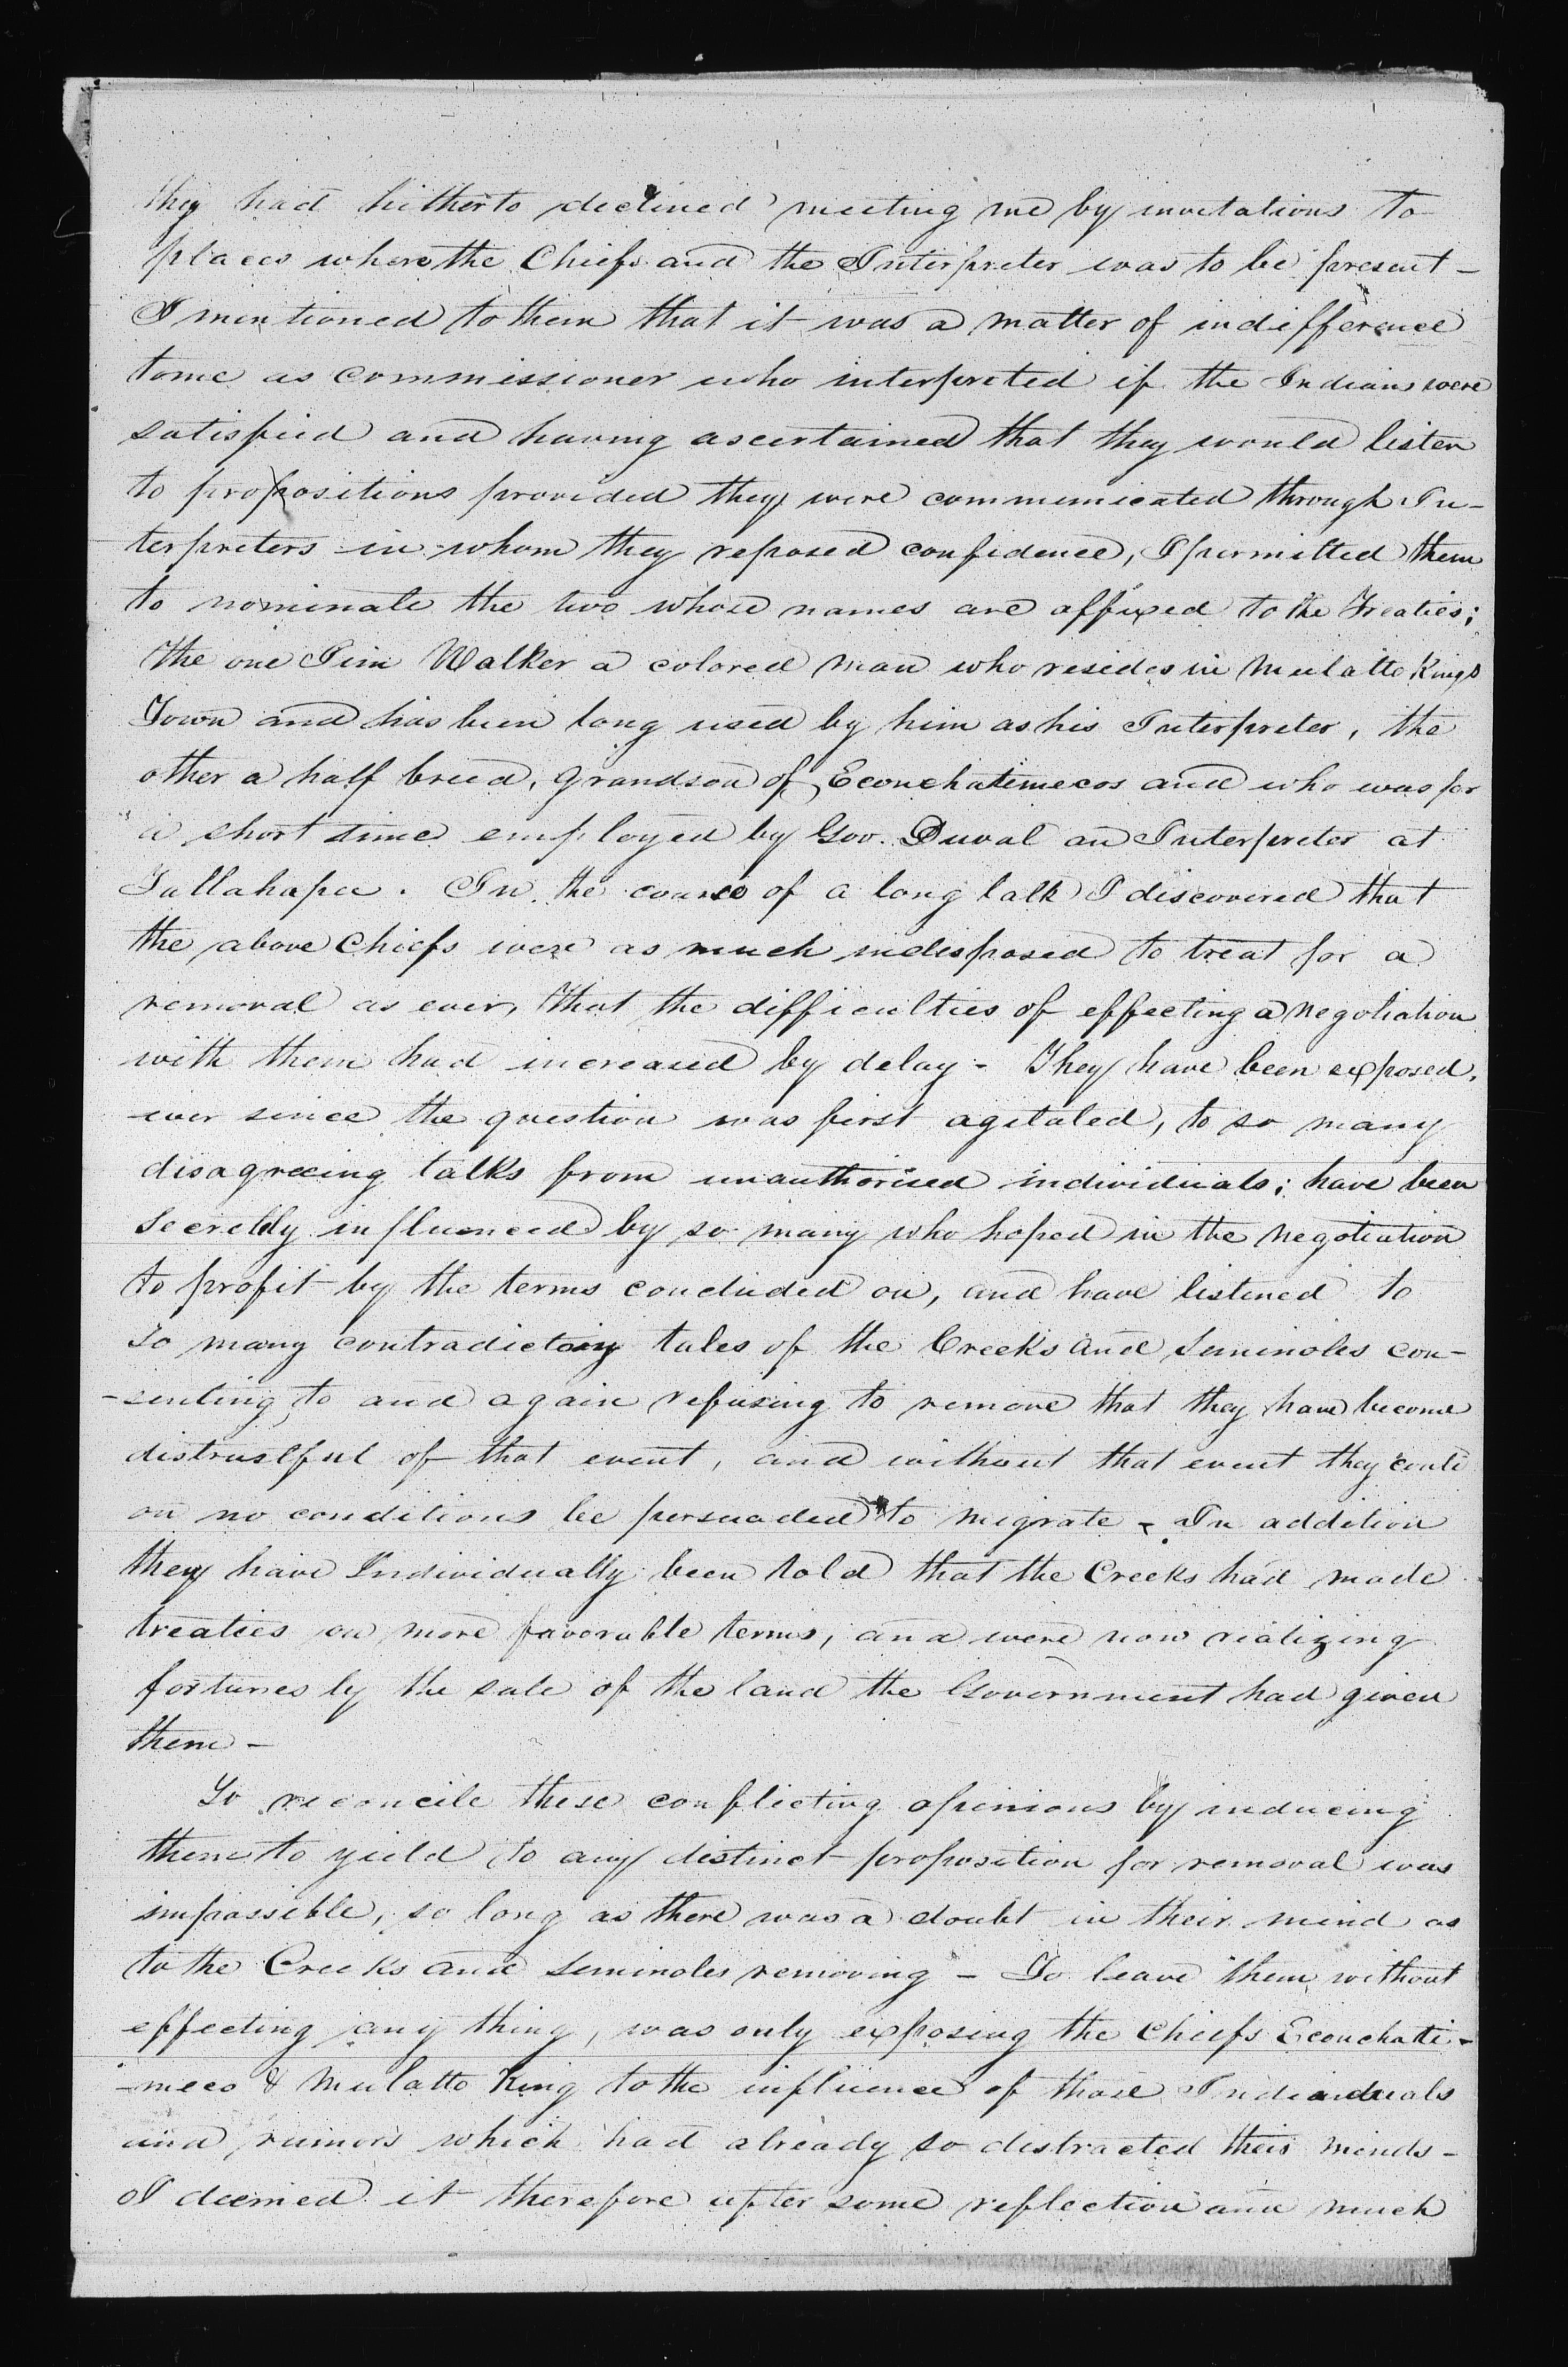 they had hitherto declined meeting me by invitations to
places where the Chiefs and the Interpreter was to be present –
I mentioned to them that it was a matter of indifference
to me as commissioner who interpreted if the Indians were
satisfied and having ascertained that they would listen
to propositions provided they were communicated through In-
terpreters in whom they reposed confidence, I permitted them
to nominate the two whose names are affixed to the Treaties;
the one Jim Walker a colored man who resides in Mulatto Kings
Town and has been long used by him as his Interpreter, the
other a half breed, grandson of Econchatimecos and who was for
a short time employed by Gov. Duval an Interpreter at
Tallahassee. In the course of a long talk I discovered that
the above Chiefs were as much indisposed to treat for a
removal as ever, that the difficulties of effecting a negotiation
with them had increased by delay – They have been exposed,
ever since the question was first agitated, to so many
disagreeing talks from unauthorised individuals; have been
secretly influenced by so many who hoped in the negotiation
to profit by the terms concluded on, and have listened to
so many contradictory tales of the Creeks and Seminoles con-
-senting to and again refusing to remove that they have become
distrustful of that event, and without that event they could
on no conditions be persuaded to migrate – In addition
they have Individually been told that the Creeks had made
treaties on more favorable terms, and were now realizing
fortunes by the sale of the land the Government had given
them –
To reconcile these conflicting opinions by inducing
them to yield to any distinct proposition for removal was
impossible, so long as there was a doubt in their mind as
to the Creeks and Seminoles removing – To leave them without
effecting any thing, was only exposing the Chiefs Econchati-
-meco & Mulatto King to the influence of those Individuals
and rumors which had already so distracted their minds –
I deemed it therefore after some reflection and much